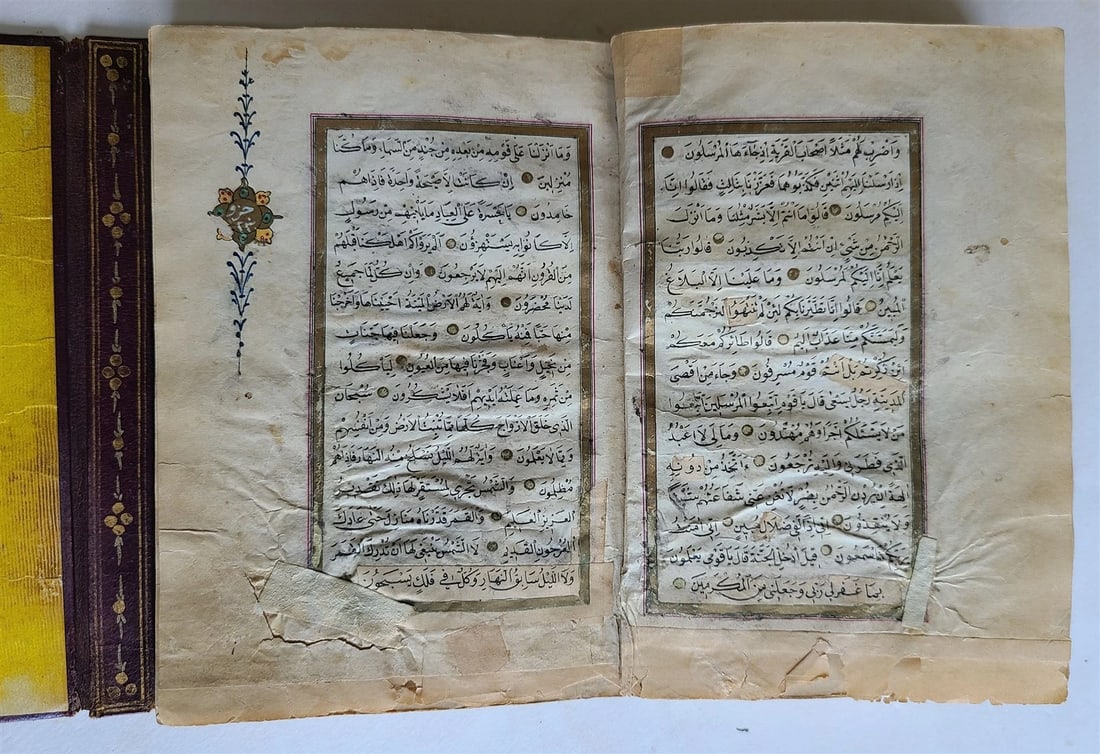 واضرب لهم مثلا اصحاب القرية اذ جاءها المرسلون
اذ ارسلنا اليهم اثنين فكذبوهما فعززنا بثالث فقالوا انا
اليكم مرسلون قالوا ما انتم الا بشر مثلنا وما انزل
الرحمن من شئ ان انتم الا تكذبون قالوا ربنا
يعلم انا اليكم لمرسلون وما علينا الا البلاغ
المبين قالوا انا تطيرنا بكم لئن لم تنتهوا لنرجمنكم
وليمسنكم منا عذاب اليم قالوا طائركم معكم
ائن ذكرتم بل انتم قوم مسرفون وجاء من اقصى
المدينة رجل يسعى قال يا قوم اتبعوا المرسلين اتبعوا
من لا يسئلكم اجرا وهم مهتدون وما لي لا اعبد
الذي فطرني واليه ترجعون ءاتخذ من دونه
الهة ان يردن الرحمن بضر لا تغن عني شفاعتهم شيئا
ولا ينقذون اني اذا لفي ضلال مبين اني امنت
بربكم فاسمعون قيل ادخل الجنة قال يا ليت قومي يعلمون
بما غفر لي ربي وجعلني من المكرمين
وما انزلنا على قومه من بعده من جند من السماء وما كنا
منزلين ان كانت الا صيحة واحدة فاذا هم
خامدون يا حسرة على العباد ما ياتيهم من رسول
الا كانوا به يستهزؤن الم يروا كم اهلكنا قبلهم
من القرون انهم اليهم لا يرجعون وان كل لما جميع
لدينا محضرون واية لهم الارض الميتة احييناها واخرجنا
منها حبا فمنه ياكلون وجعلنا فيها جنات
من نخيل واعناب وفجرنا فيها من العيون لياكلوا
من ثمره وما عملته ايديهم افلا يشكرون سبحان
الذي خلق الازواج كلها مما تنبت الارض ومن انفسهم
ومما لا يعلمون واية لهم الليل نسلخ منه النهار فاذا هم
مظلمون والشمس تجري لمستقر لها ذلك تقدير
العزيز العليم والقمر قدرناه منازل حتى عاد كا
لعرجون القديم لا الشمس ينبغي لها ان تدرك القمر
ولا الليل سابق النهار وكل في فلك يسبحون
حزب